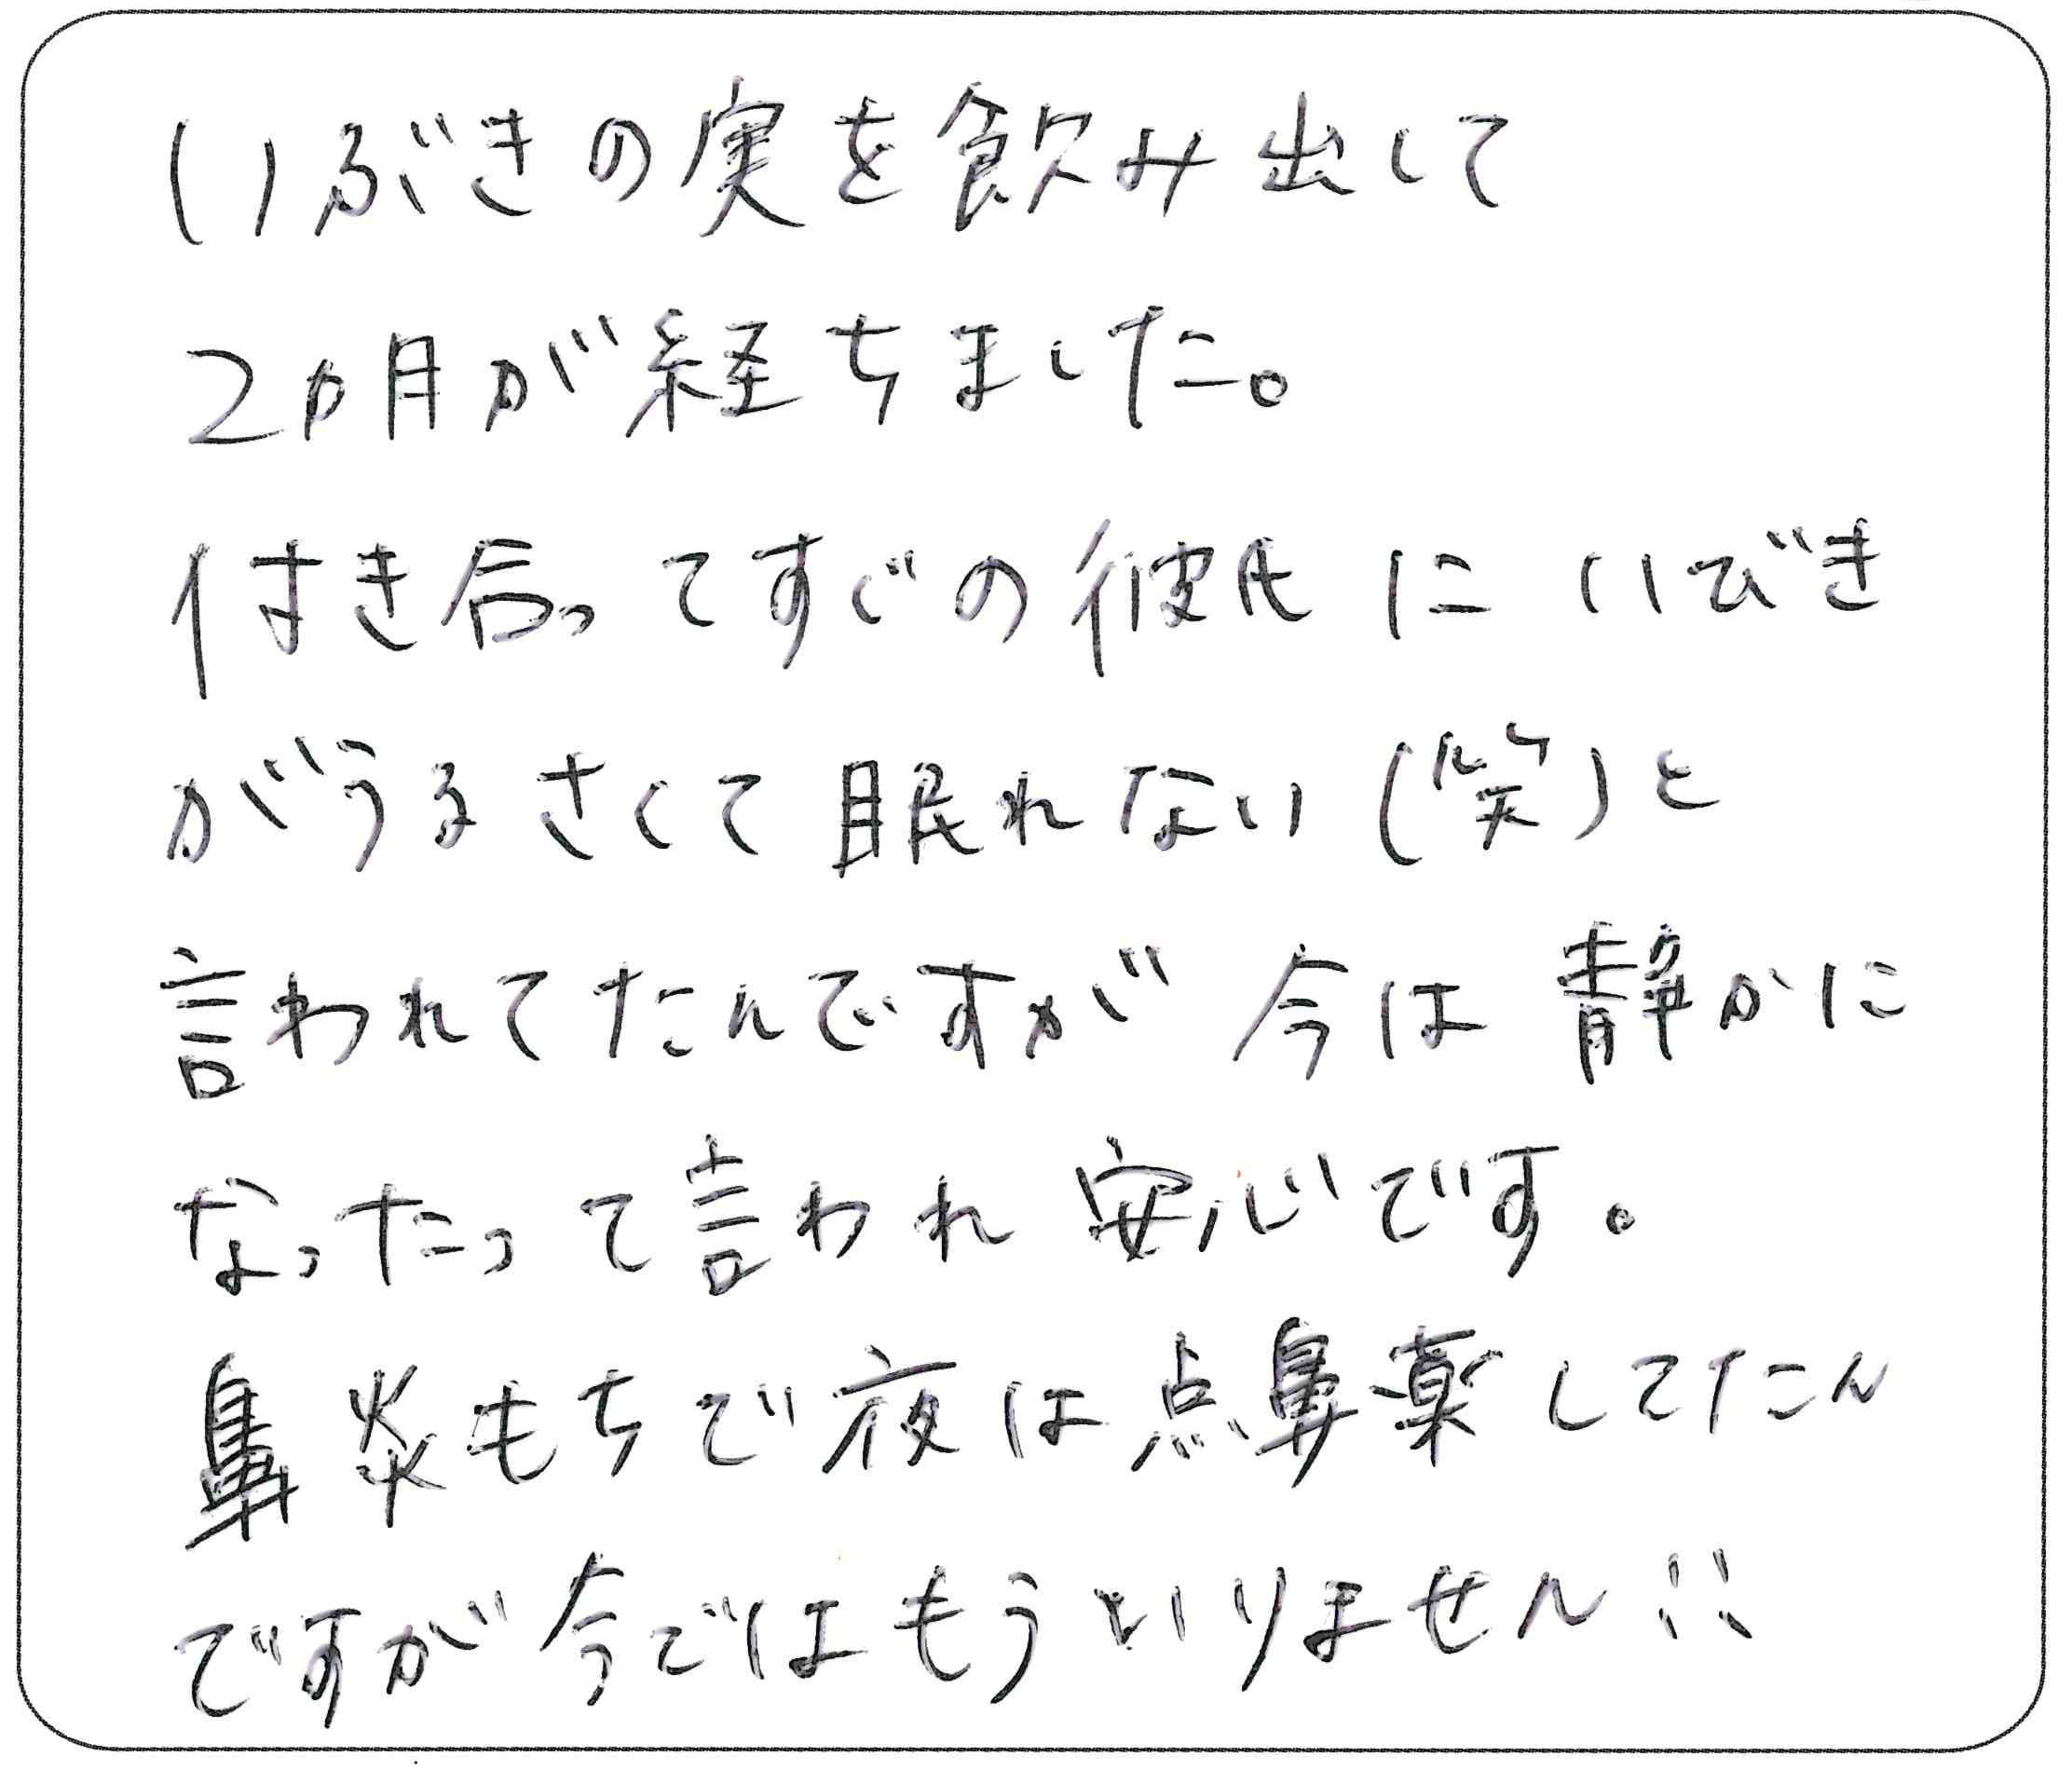 いぶきの実を飲み出して
2カ月が経ちました。
付き合ってすぐの彼氏にいびき
がうるさくて眠れない(笑)と
言われてたんですが今は静かに
なったって言われ安心です。
鼻炎もちで夜は点鼻薬してたん
ですが今ではもういりません!!